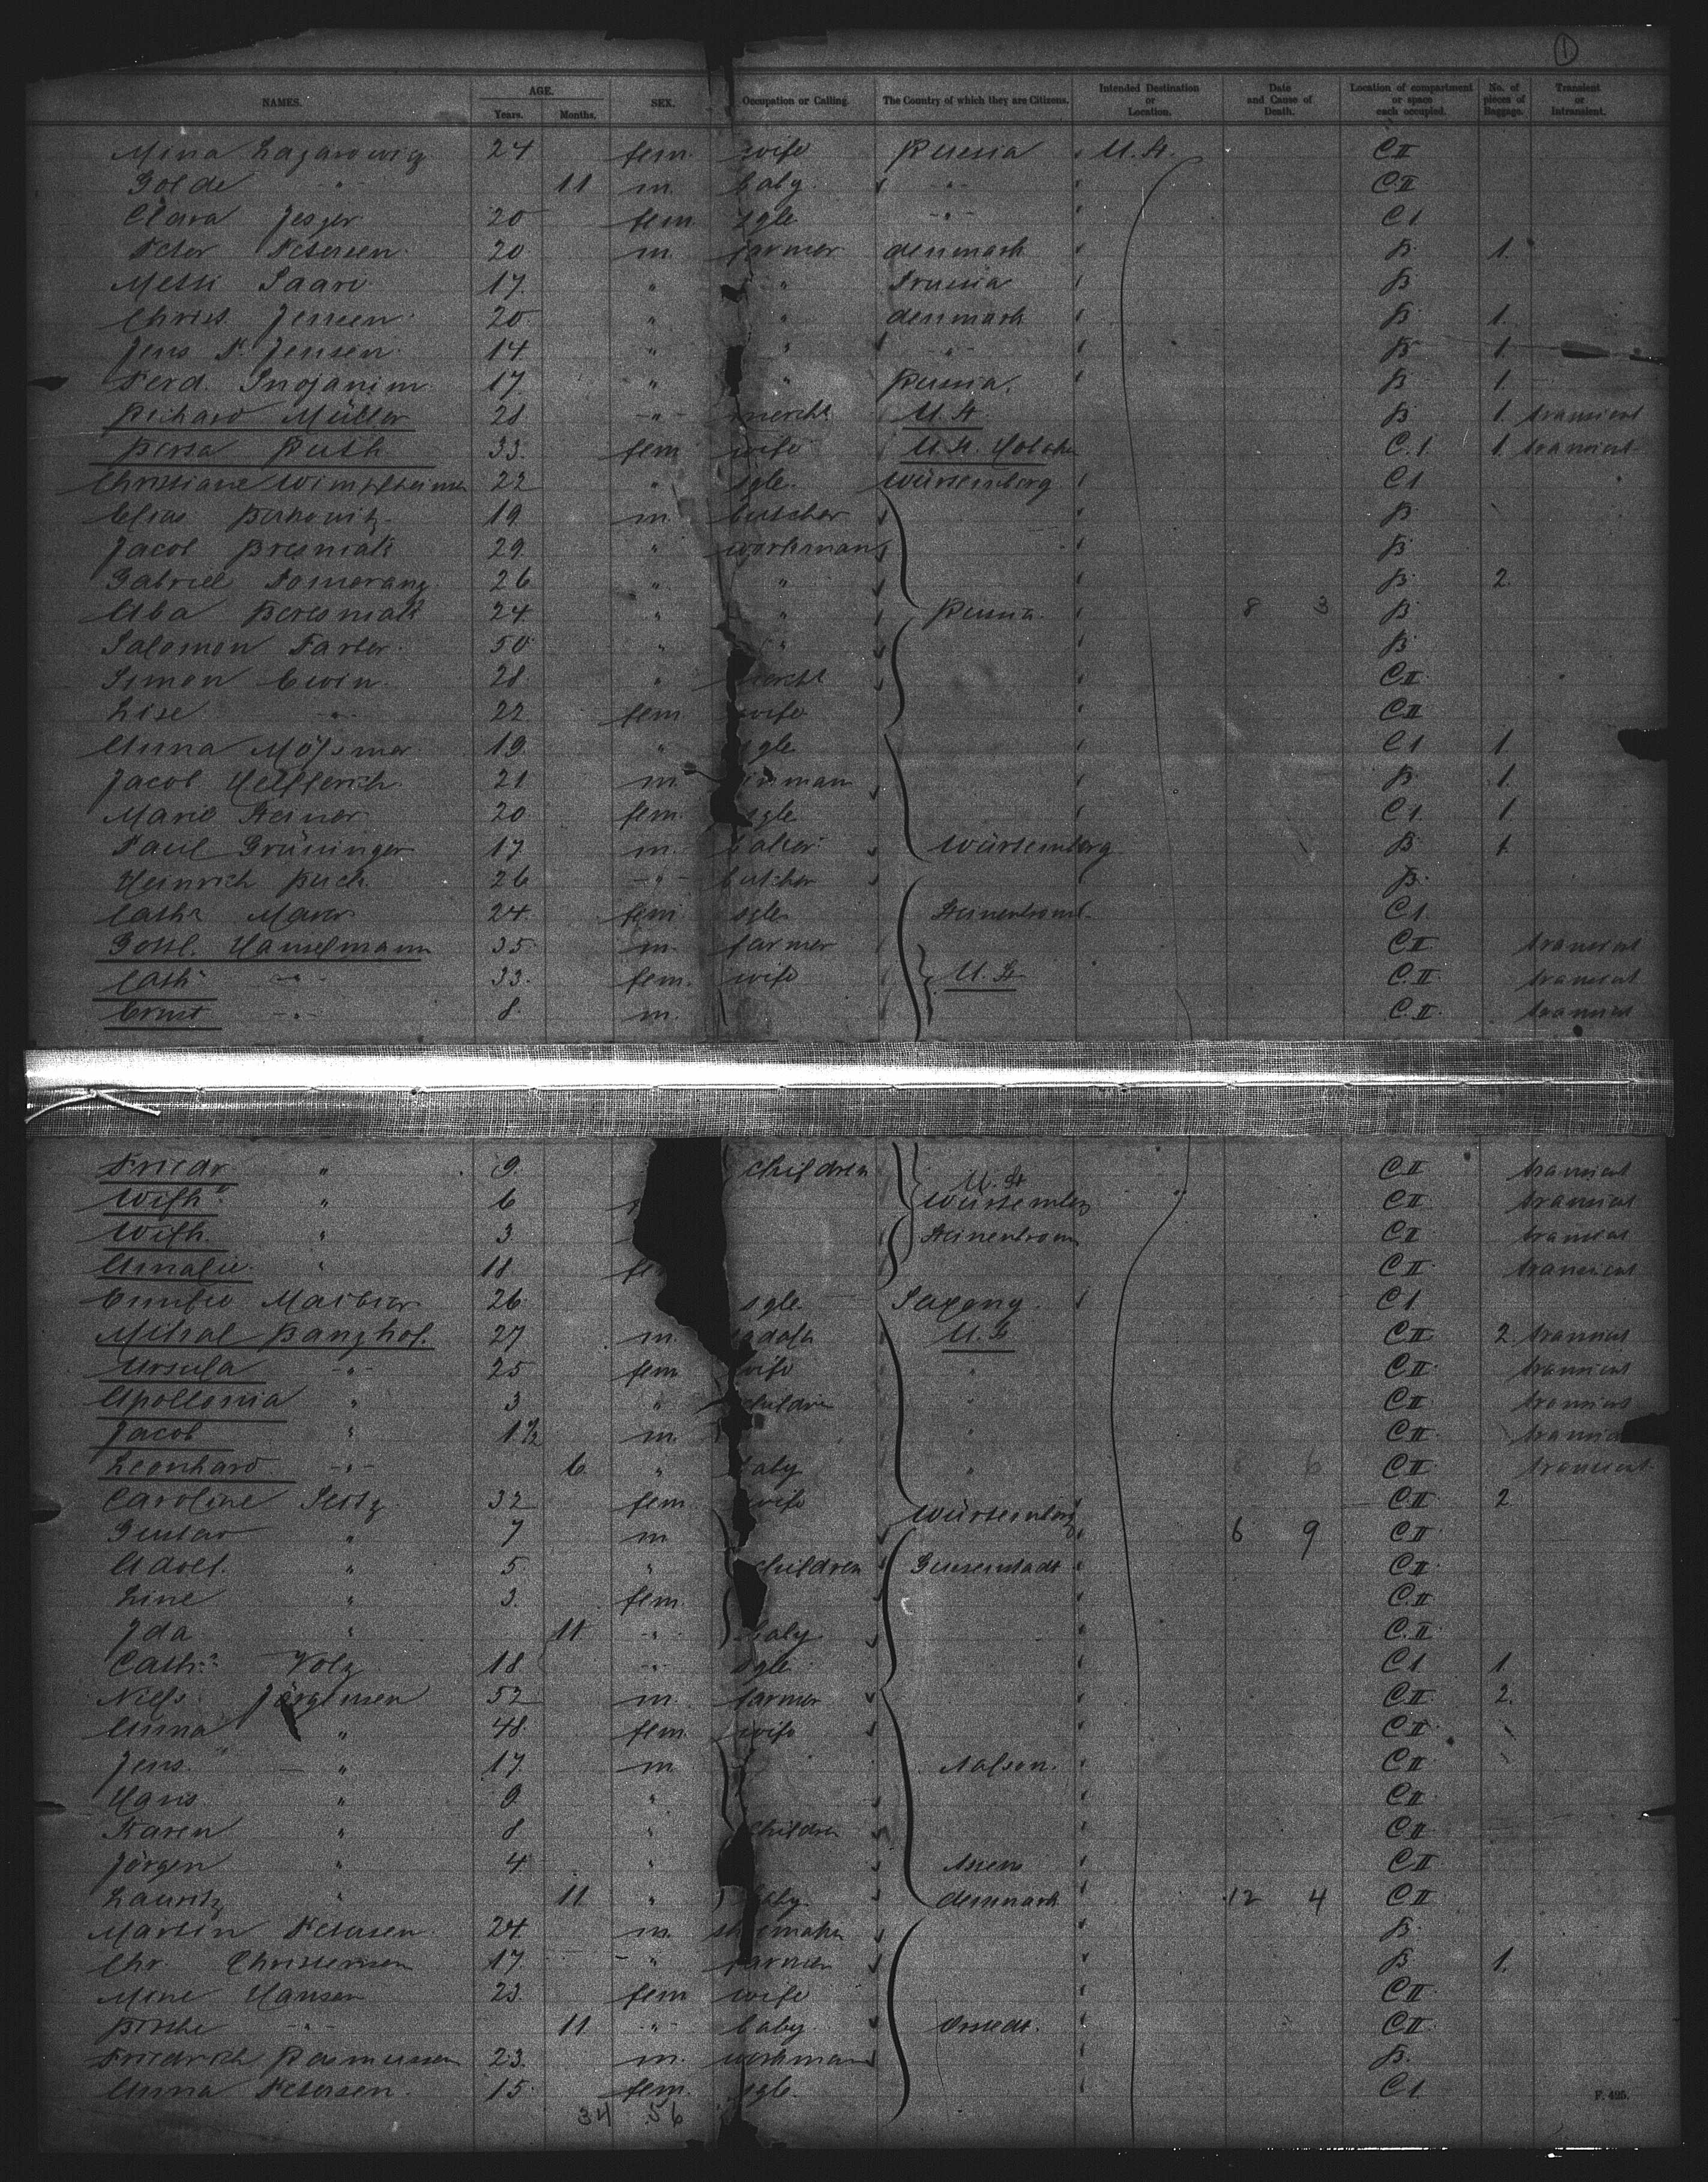 1
NAMES. AGE. Years. Months. SEX. Occupation or Calling. The Country of which they are Citizens. Intended Destination or Location. Date and Cause of Death. Location of compartment or space each occupied. No. of pieces of Baggage. Transient or Intransient.
Mina Lazarowig 24 fem wife Russia U. St. C II
Golde -"- 11 m. baby -"- C II
Clara Jesjer 20 fem sgle -"- C 1
Peter Petersen 20 m. farmer denmark B 1.
Messi Saari 17. " " Prussia B
Christ. Jensen 20 " " denmark B 1.
Jens P. Jensen 14 " " -"- B 1.
Ferd. 17. " " Russia. B 1.
Richard Müller 28 -"- mercht U. St. B 1. transient
Berta Ruth 33. fem wife U. St. C. 1. 1. transient
Christiane Wimpfheimer 22 " sgle. Würtemberg C 1
Elias Berkowitz 19 m. butcher B
Jacob Bresniak 29. " workman B
Gabriel Pomeranz 26 " " B 2.
Aba Beresniak 24 " " Russia. 8 3 B
Salomon Farber 50 " " B
Simon Ewin 28 " mercht C II
Lise -"- 22 fem wife C II
Anna Mössmer 19. " sgle C 1 1.
Jacob Helfferich 21 m. B 1.
Marie Steiner 20 fem. sgle C 1. 1.
Paul Grüninger 17 m. baker Würtemberg B 1.
Heinrich Buck 26 -"- butcher B.
Cathe Maier 24. fem sgle C 1.
Gottl. Hanselmann 35 m. farmer C II transient
Cath -"- 33. fem. wife U. St C. II transient
Ernst -"- 8. m. C. II transient
Friedr " 9. children U. St C II transient
Wilh " 6 Würtemberg C II transient
Wilh. " 3 C II transient
Amalie " 18 C II transient
Emilie 26 sgle Saxony. C 1
Banzhof. 27 m. U. St C II 2 transient
Ursula -"- 25 fem wife " C II transient
Apollonia " 3 " children " C II transient
Jacob " 1 1/2 m. " C II
Leonhard -"- 6 " baby " 6 C II transient
Caroline Seitz 32 fem wife Würtemberg C II 2
Gustav " 7 m 6 9 C II
Adolf. " 5. " children C II
Line " 3. fem. C. II
Ida " 11 -"- baby C. II
Cath. Volz 18 -"- sgle C 1 1.
Niels Jörgensen 52 m. farmer C II 2.
Anna " 48 fem. wife C II
Jens " 17. m C II
Hans " 9 " C II
Karen " 8 " children C II
Jörgen " 4 " Assens C II
Lauritz " 11 " baby denmark 12 4 C II
Martin Petersen 24. m. shoemaker B.
Chr. Christensen 17. " farmer B 1.
Mine Hansen 23. fem wife C II
-"- 11 -"- baby C II
Friedrich Rasmussen 23. m. workman B.
Anna Petersen. 15. fem. sgle C 1
34 56
F. 425.